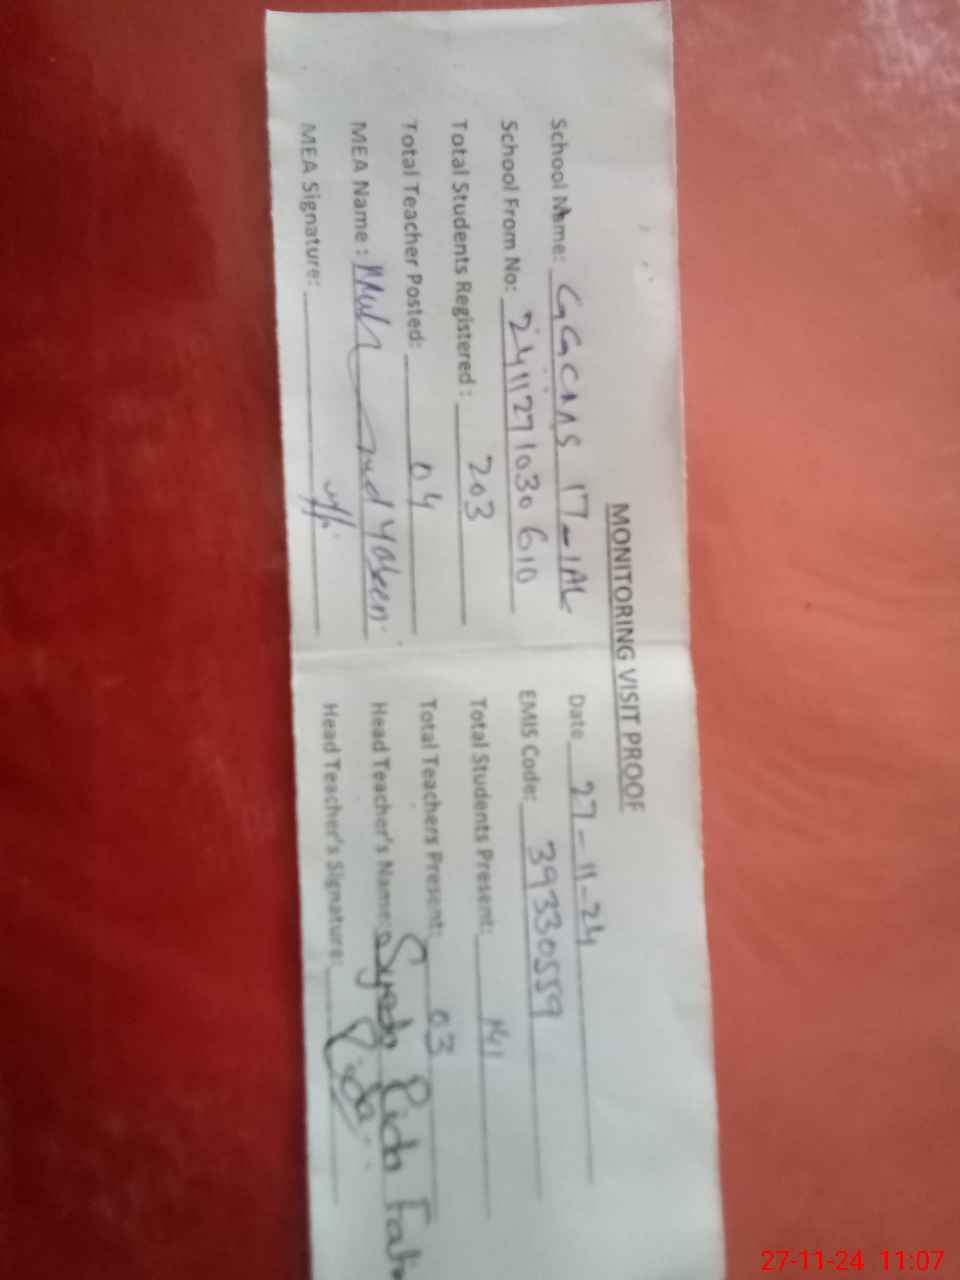 MONITORING VISIT PROOF
School Name: GGCMS 17-1AL Date 27-11-24
School From No: 2411271030610 EMIS Code: 39330559
Total Students Registered : 203 Total Students Present: 141
Total Teacher Posted: 04 Total Teachers Present: 03
MEA Name : Muhammad Yaseen Head Teacher's Name: Syeda
MEA Signature: Head Teacher's Signature: Rida
27-11-24 11:07